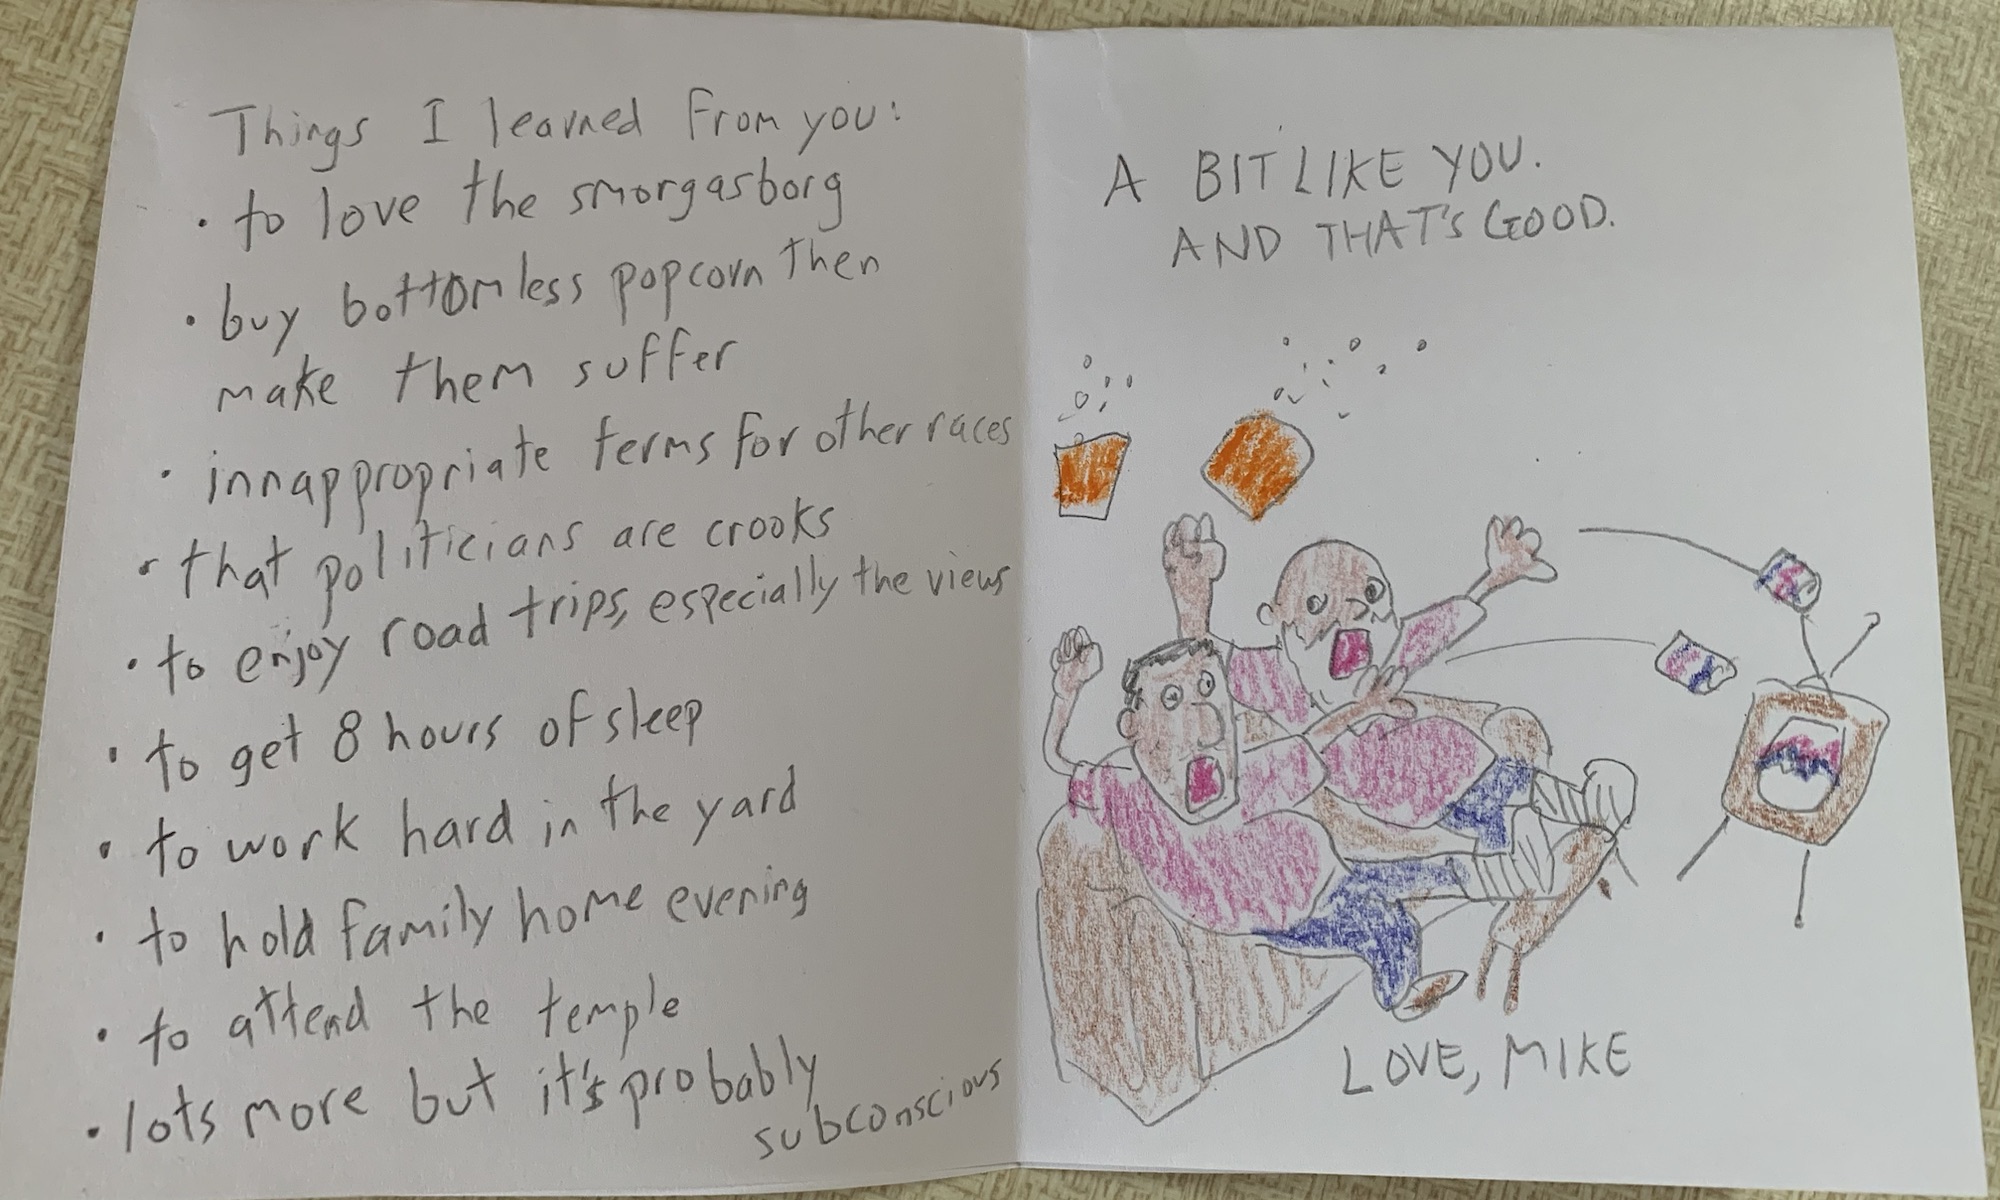 Things I learned from you:
• to love the smorgasborg
• buy bottomless popcorn then
make them suffer
• innappropriate terms for other races
• that politicians are crooks
• to enjoy road trips, especially the views
• to get 8 hours of sleep
• to work hard in the yard
• to hold family home evening
• to attend the temple
• lots more but it's probably
subconscious
A BIT LIKE YOU.
AND THAT'S GOOD.
LOVE, MIKE